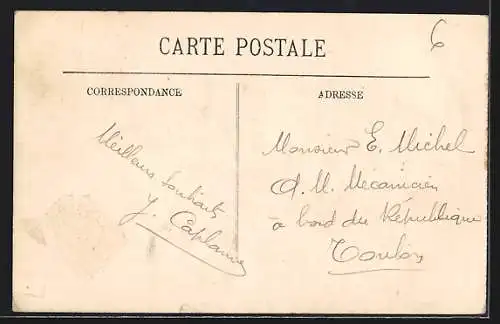 CARTE POSTALE
6
CORRESPONDANCE
Meilleurs souhaits
Y. Caplanne
ADRESSE
Monsieur E. Michel
Q. M. Mécanicien
à bord du République
Toulon